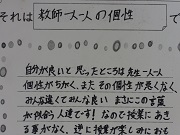 それは 教師一人一人の個性 で
自分が良いと思ったところは先生一人一人
個性がちがく、またその個性が悪くなく、
みんな違ってみんな良い まさにこの言葉
が似合う人達です！なので授業にあき
る事がなく、逆に授業が楽しみにおも